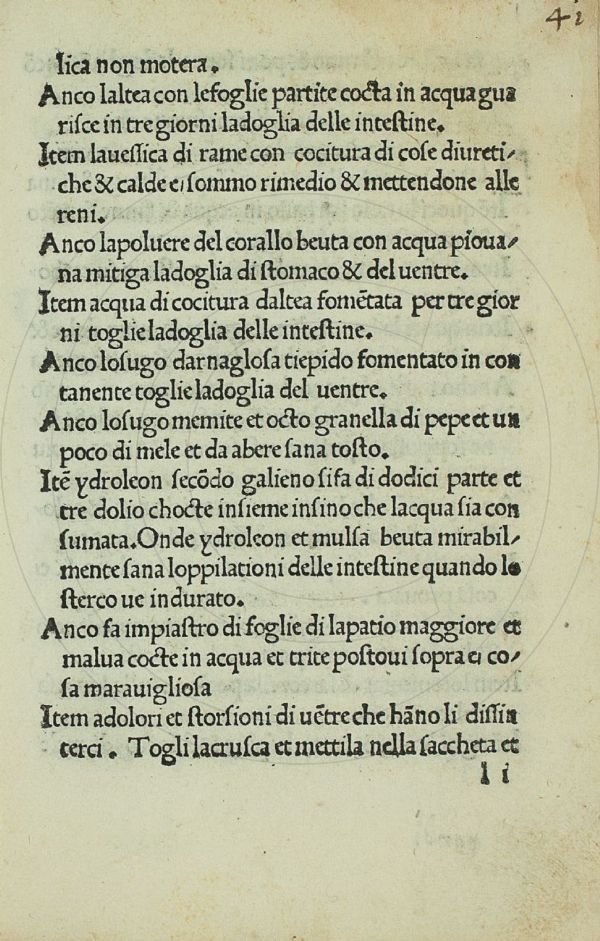 41
lica non motera.
Anco laltea con lefoglie partite cocta in acqua gua
risce in tre giorni ladoglia delle intestine.
Item lauessica di rame con cocitura di cose diureti/
che & calde ei sommo rimedio & mettendone alle
reni.
Anco lapoluere del corallo beuta con acqua pioua/
na mitiga ladoglia di stomaco & del uentre.
Item acqua di cocitura daltea fomētata per tre gior
ni toglie ladoglia delle intestine.
Anco losugo darnaglosa tiepido fomentato in con
tanente toglie ladoglia del uentre.
Anco losugo memite et octo granella di pepe et un
poco di mele et da abere sana tosto.
Itē ydroleon secōdo galieno sifa di dodici parte et
tre dolio chocte insieme insino che lacqua sia con
sumata. Onde ydroleon et mulsa beuta mirabil/
mente sana loppilationi delle intestine quando lo
sterco ue indurato.
Anco fa impiastro di foglie di lapatio maggiore et
malua cocte in acqua et trite postoui sopra ei co/
sa marauigliosa
Item adolori et storsioni di uētre che hāno li dissin
terci. Togli lacrusca et mettila nella saccheta et
l i